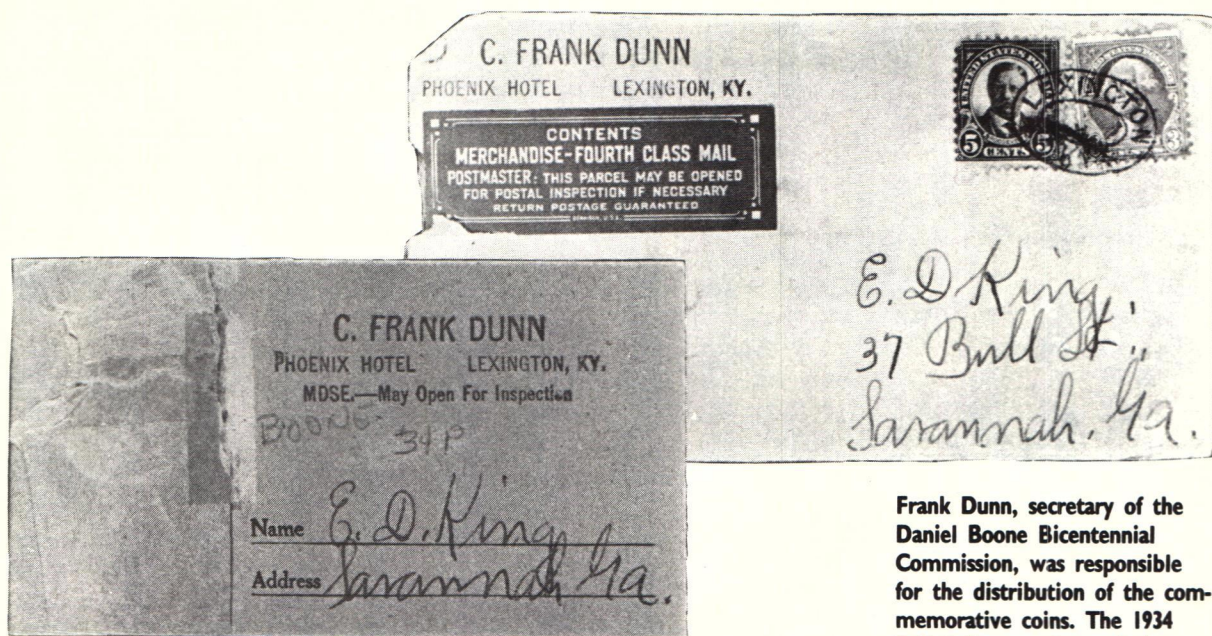 C. FRANK DUNN
PHOENIX HOTEL LEXINGTON, KY.
CONTENTS
MERCHANDISE-FOURTH CLASS MAIL
POSTMASTER: THIS PARCEL MAY BE OPENED
FOR POSTAL INSPECTION IF NECESSARY
RETURN POSTAGE GUARANTEED
UNITED STATES POSTAGE
5 CENTS 5
LEXINGTON
3
E. D King,
37 Bull St.,
Savannah, Ga.
C. FRANK DUNN
PHOENIX HOTEL LEXINGTON, KY.
MDSE.—May Open For Inspection
BOONE
34 P
Name E. D. King
Address Savannah Ga.
Frank Dunn, secretary of the
Daniel Boone Bicentennial
Commission, was responsible
for the distribution of the com-
memorative coins. The 1934